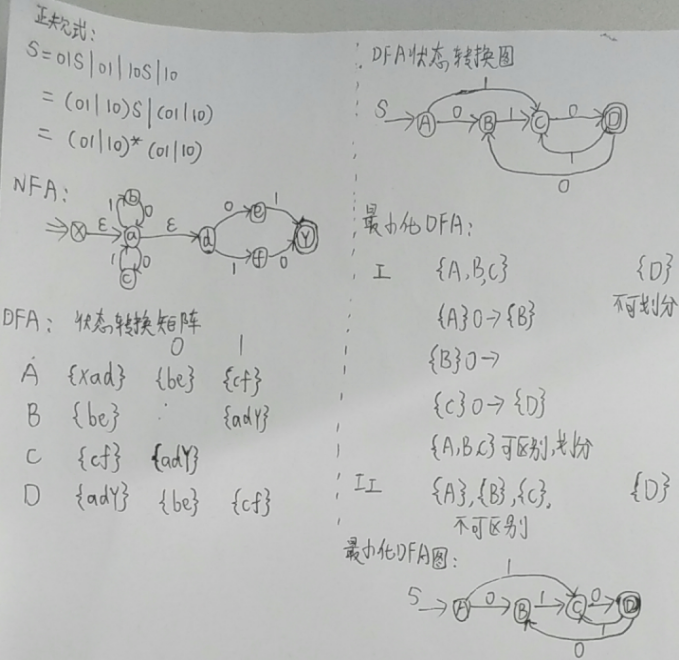 正规式:
S = 01S | 01 | 10S | 10
= (01|10)S | (01|10)
= (01|10)* (01|10)
NFA:
⇒ X ε a ε d 0 e 1 Y
b 1 0
c 1 0
1 f 0
DFA: 状态转换矩阵
0 1
A {xad} {be} {cf}
B {be} {adY}
C {cf} {adY}
D {adY} {be} {cf}
DFA状态转换图
1
S → A 0 B 1 C 0 D
1
0
最小化DFA:
I {A,B,C} {D}
不可划分
{A}0→{B}
{B}0→
{C}0→{D}
{A,B,C}可区别,划分
II {A},{B},{C}, {D}
不可区别
最小化DFA图:
1
S → A 0 B 1 C 0 D
1
0